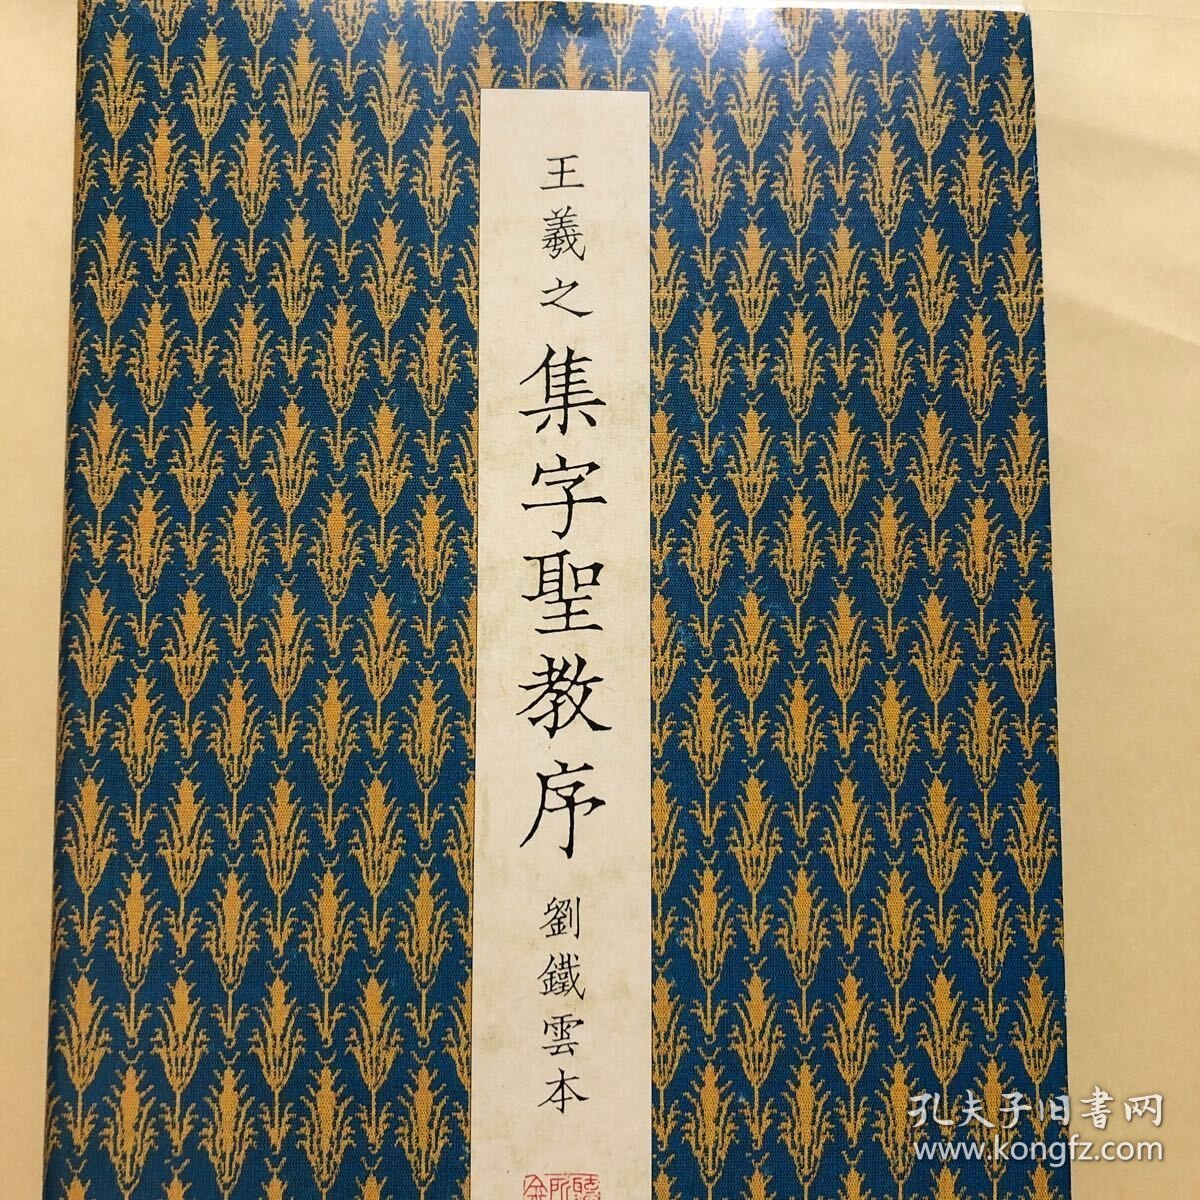 王羲之
集字聖教序
劉鐵雲本
孔夫子旧書网
www.kongfz.com